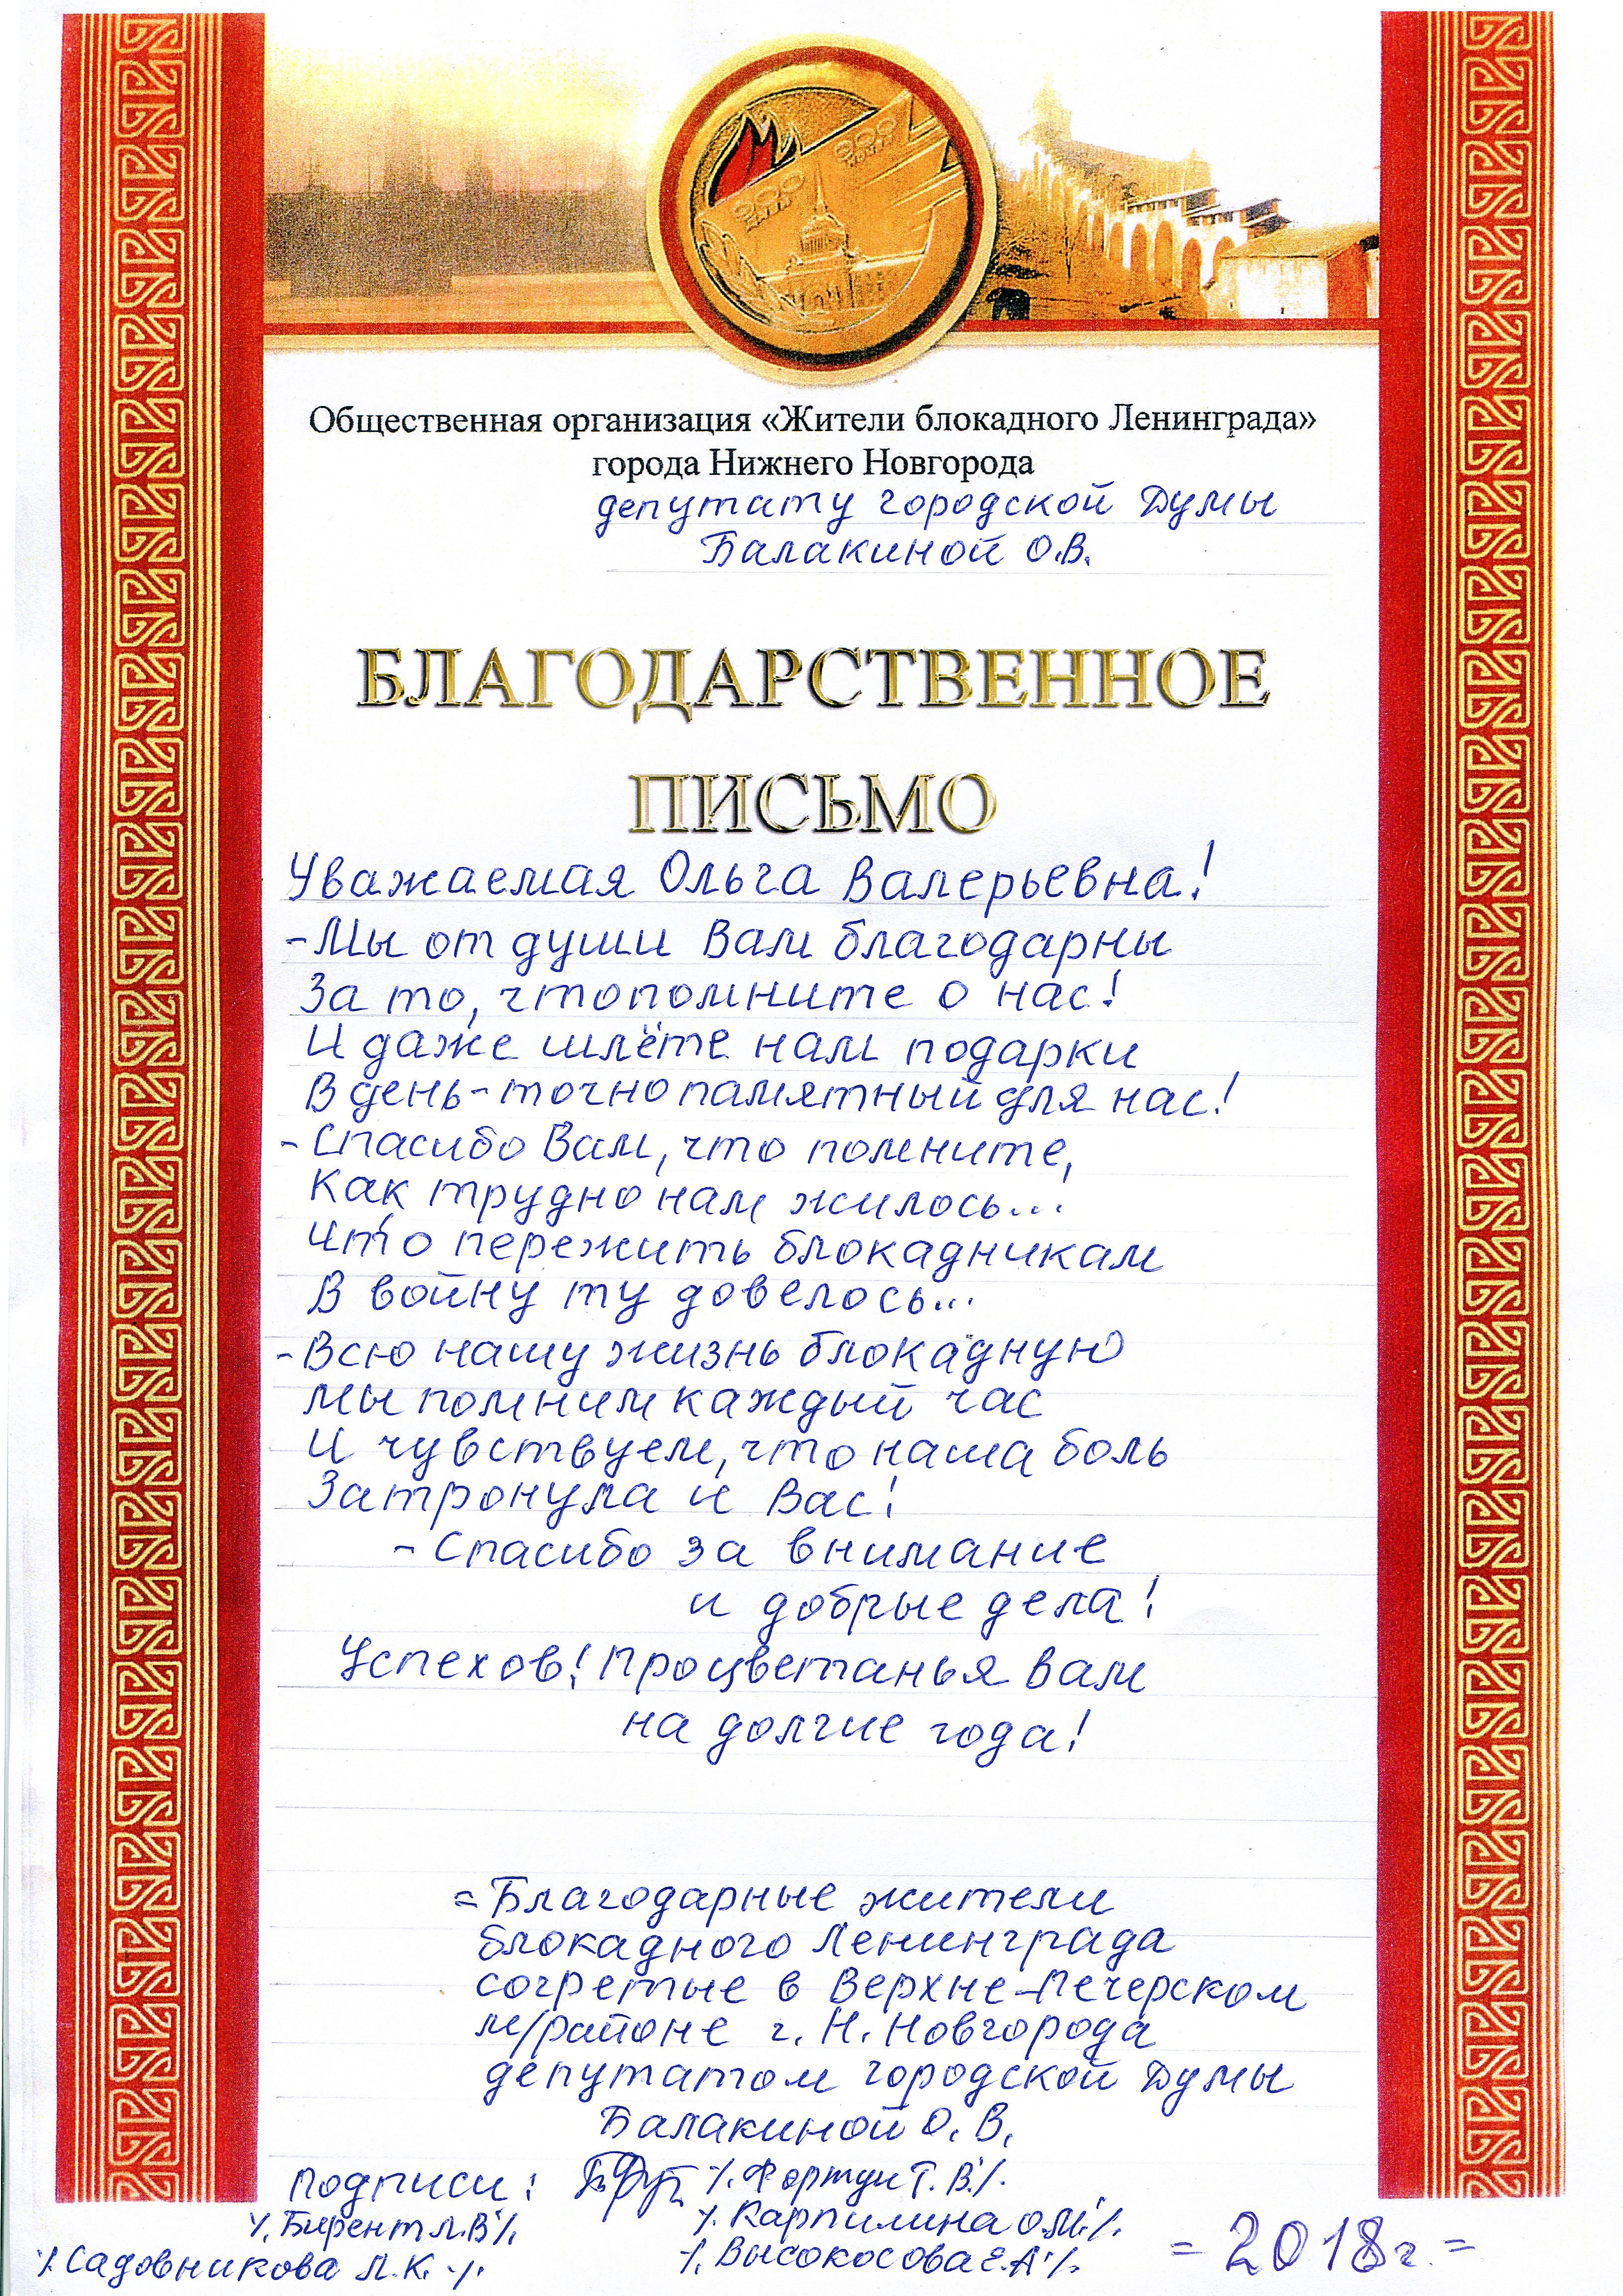 900 дней
900 дней
Общественная организация «Жители блокадного Ленинграда»
города Нижнего Новгорода
депутату городской Думы
Балакиной О.В.
БЛАГОДАРСТВЕННОЕ
ПИСЬМО
Уважаемая Ольга Валерьевна!
- Мы от души Вам благодарны
За то, чтопомните о нас!
И даже шлёте нам подарки
В день-точно памятный для нас!
- Спасибо Вам, что помните,
Как трудно нам жилось...
Что пережить блокадникам
В войну ту довелось...
- Всю нашу жизнь блокадную
Мы помним каждый час
И чувствуем, что наша боль
Затронула и Вас!
- Спасибо за внимание
и добрые дела!
Успехов! Процветанья Вам
на долгие года!
= Благодарные жители
блокадного Ленинграда
согретые в Верхне-Печерском
м/районе г. Н. Новгорода
депутатом городской Думы
Балакиной О. В.
Подписи: ⁒ Фортун Т. В. ⁒
⁒ Бирент Л.В. ⁒ ⁒ Карпилина О.М. ⁒
⁒ Садовникова Л. К. ⁒ ⁒ Высокосова Е.А. ⁒ = 2018 г. =